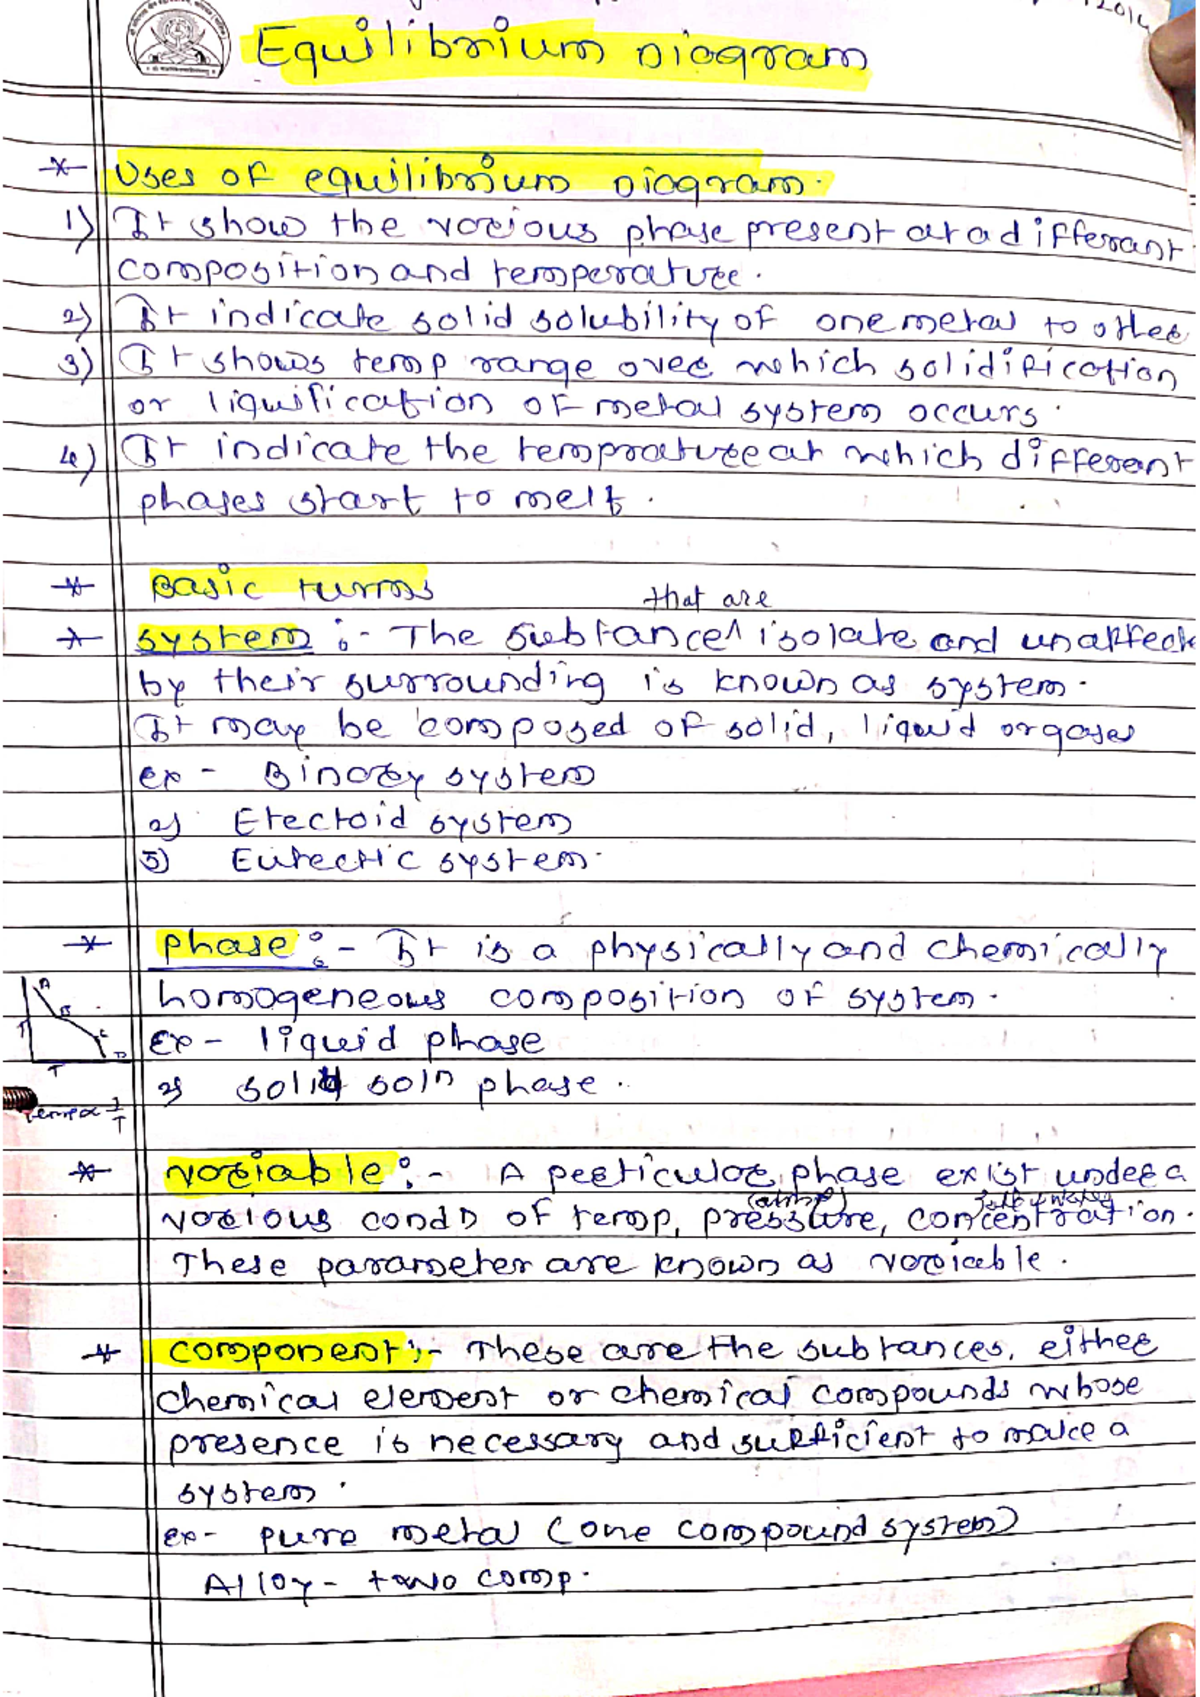 2014
Equilibrium Diagram
* Uses of equilibrium Diagram.
1) It show the various phase present at a differrant
composition and temperature.
2) It indicate solid solubility of one metal to other
3) It shows temp range over which solidification
or liquification of metal system occurs.
4) It indicate the temprature at which different
phases start to melt.
* Basic turms
that are
* system :- The substance ^ isolate and unaffect
by their surrounding is known as system.
It may be composed of solid, liquid or gases
ex - Binary system
2) Etectoid system
3) Eutectic system.
* phase :- It is a physically and chemically
homogeneous composition of system.
Ex - liquid phase
2) solid soln phase.
A
B
C
D
T
T
temp α 1/T
* variable :- A perticular phase exist under a
various condn of temp, pressure, concentration.
These parameter are known as variable.
* component :- These are the substances, either
chemical element or chemical compounds whose
presence is necessary and sufficient to make a
system.
ex - pure metal (one compound system)
Alloy - two comp.